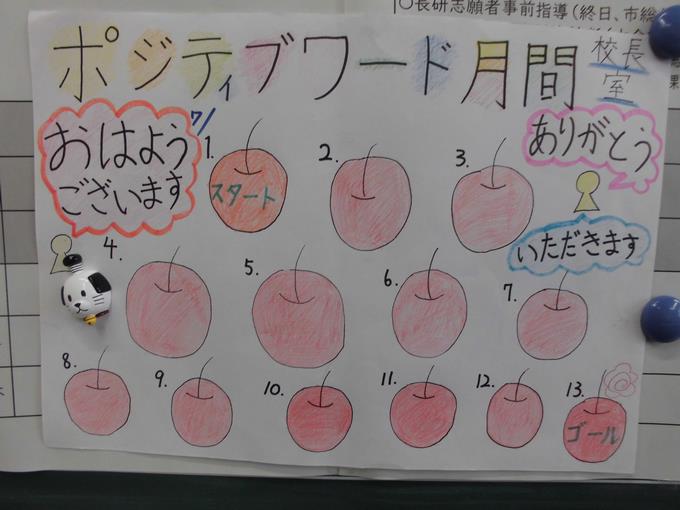 〇長研志願者事前指導(終日、市総
ポジティブワード月間
校長
室
おはよう
ございます
ありがとう
いただきます
7/
1.
スタート
2.
3.
4.
5.
6.
7.
8.
9.
10.
11.
12.
13.
ゴール
果